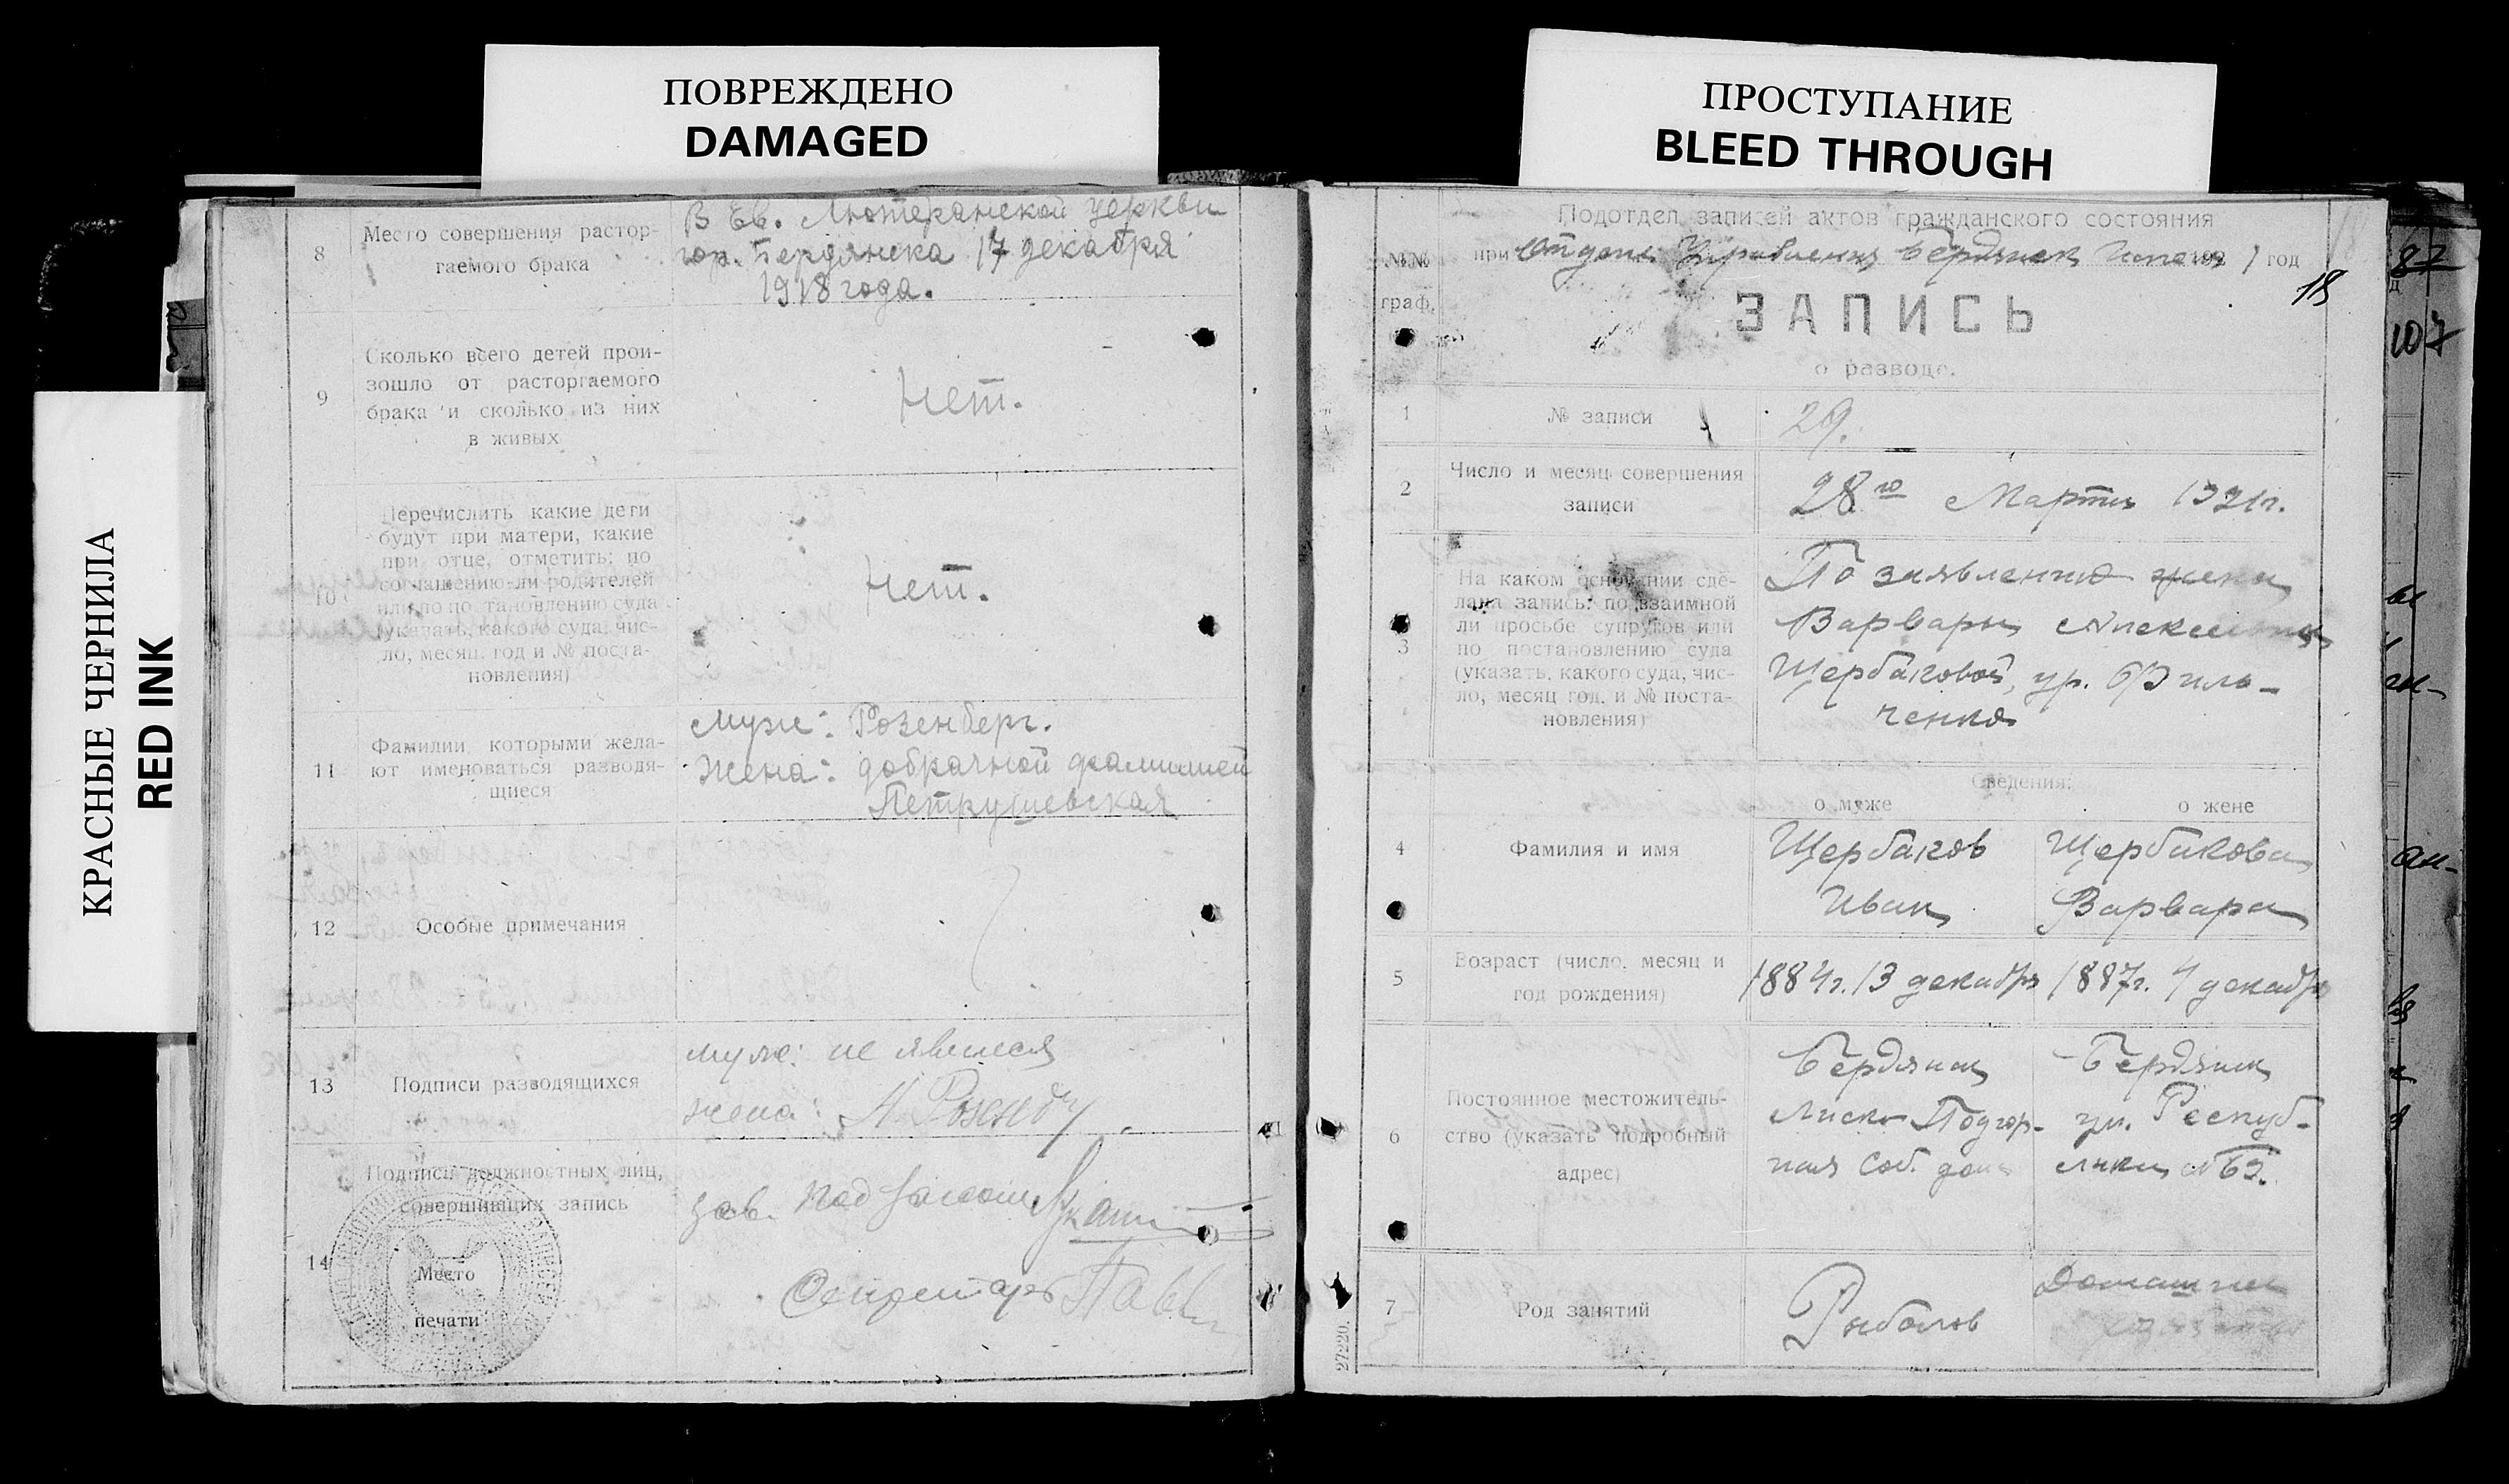 ПОВРЕЖДЕНО
DAMAGED
ПРОСТУПАНИЕ
BLEED THROUGH
КРАСНЫЕ ЧЕРНИЛА
RED INK
8
Место совершения растор-
гаемого брака
В Ев. Лютеранской церкви
гор. Бердянска 17 декабря
1918 года.
9
Сколько всего детей прои-
зошло от расторгаемого
брака и сколько из них
в живых
Нет.
10
Перечислить какие дети
будут при матери, какие
при отце, отметить: по
соглашению-ли родителей
или по постановлению суда
(указать, какого суда, чис-
ло, месяц, год и № поста-
новления)
Нет.
11
Фамилии, которыми жела-
ют именоваться разводя-
щиеся
Муж: Розенберг.
Жена: добрачной фамилией
Петрушевская
12
Особые примечания
13
Подписи разводящихся
муж: не явился
жена: А. Розенбе
14
Подписи должностных лиц,
совершивших запись
Место
печати
Зав.
Секретарь
Подотдел записей актов гражданского состояния
№№
граф.
при Отделе Управления Бердянск 192 1 год
18
ЗАПИСЬ
о разводе.
1
№ записи
29.
2
Число и месяц совершения
записи
28го Марта 1921г.
3
На каком основании сде-
лана запись: по взаимной
ли просьбе супругов или
по постановлению суда
(указать, какого суда, чис-
ло, месяц год, и № поста-
новления)
По заявлению жены
Варвары
Щербаковой, ур.
ченко
Сведения:
о муже
о жене
4
Фамилия и имя
Щербаков
Иван
Щербакова
Варвара
5
Возраст (число, месяц и
год рождения)
1884г. 13 декабря
1887г. 4 декабря
6
Постоянное местожитель-
ство (указать подробный
адрес)
Бердянск
Лиски Подгор-
ная соб. дом
Бердянск
ул. Респуб-
лики № 63.
7
Род занятий
Рыболов
Домашние
87
107